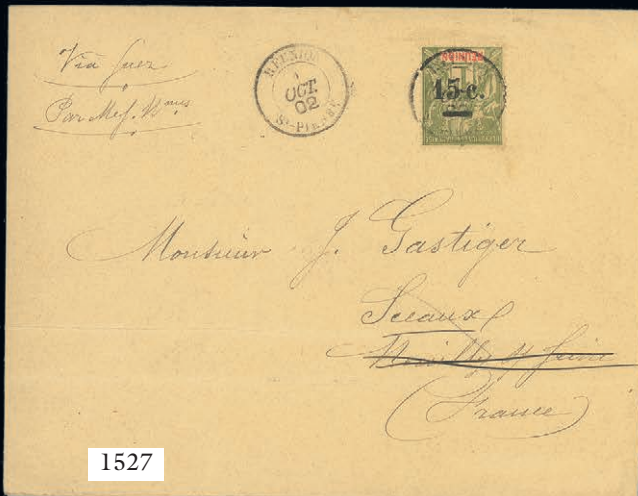 Via Suez
Par Mes. Mmes
RÉUNION
1
OCT.
02
St-PIERRE
RÉUNION
15 c.
Monsieur J. Gastiger
Sceaux
Neuilly s/ Seine
(France)
1527